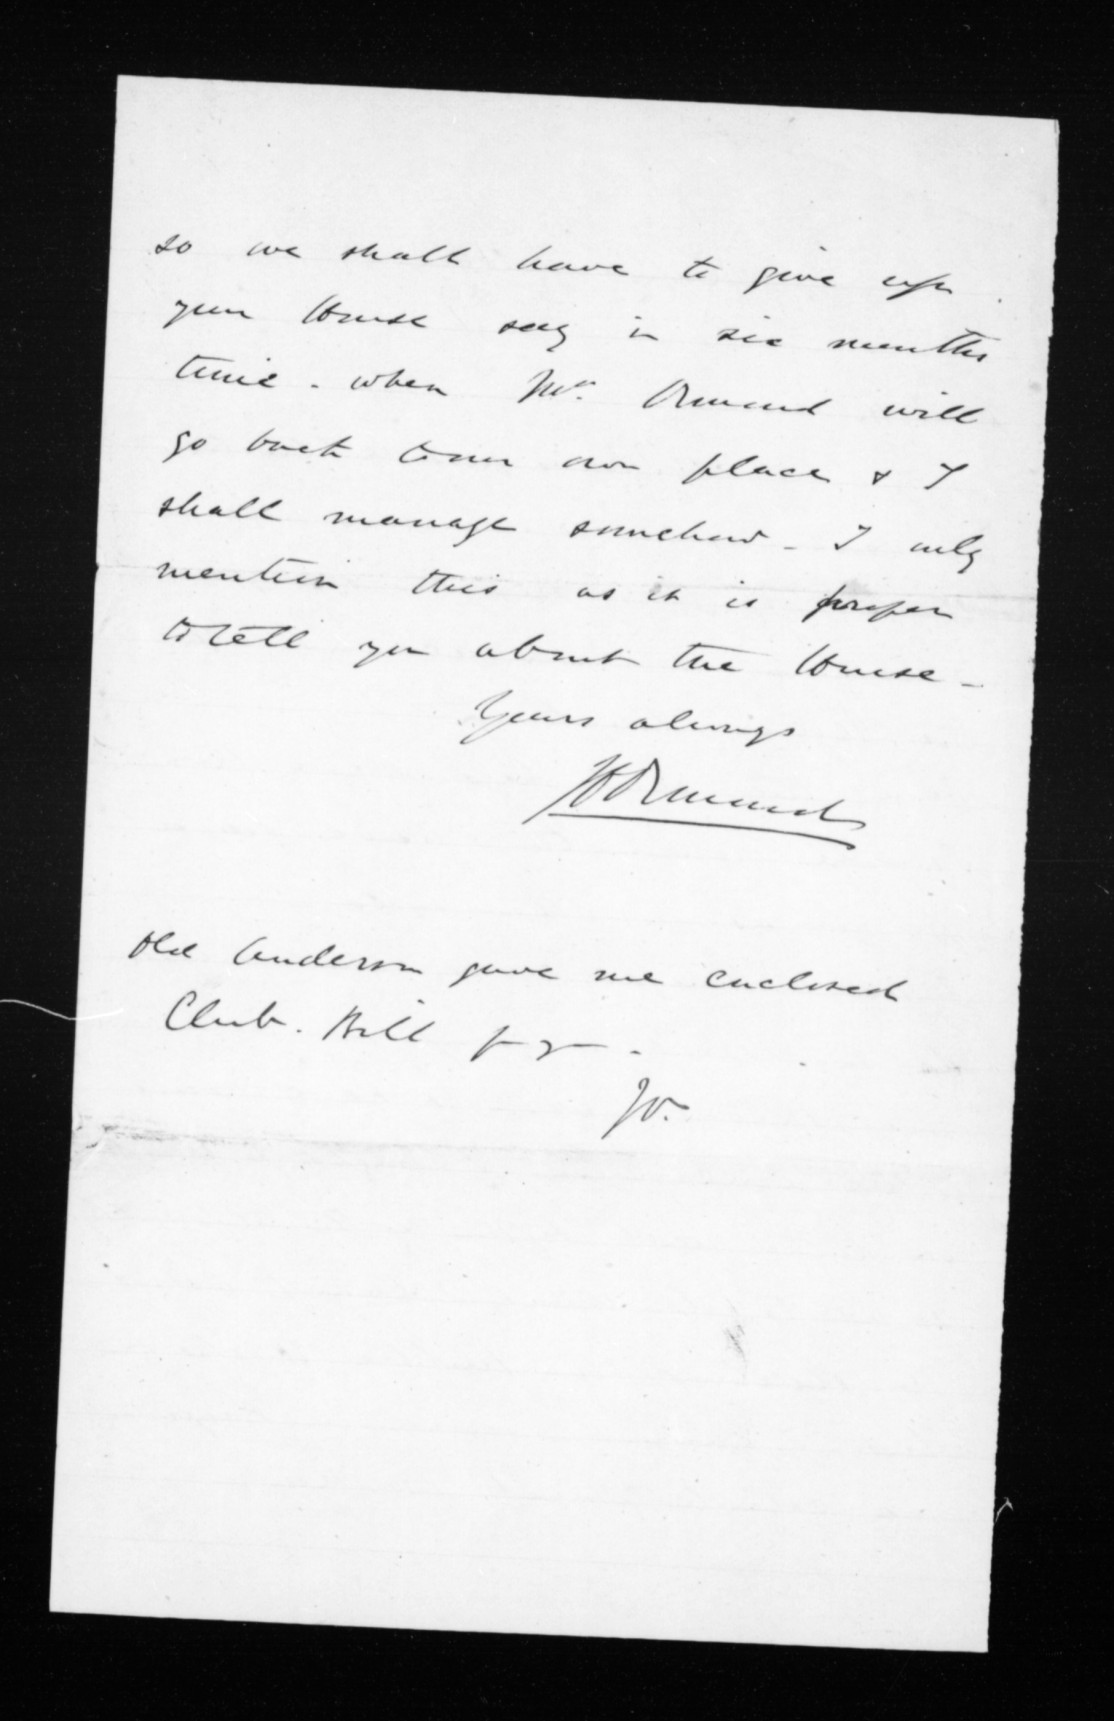 so we shall have to give up
your House say in six months
time - when Mrs. Ormond will
go back to our own place & I
shall manage somehow - I only
mention this as it is proper
to tell you about the House -
Yours always
JD Ormond
Old Anderson gave me enclosed
Club. Bill for you -
JO.